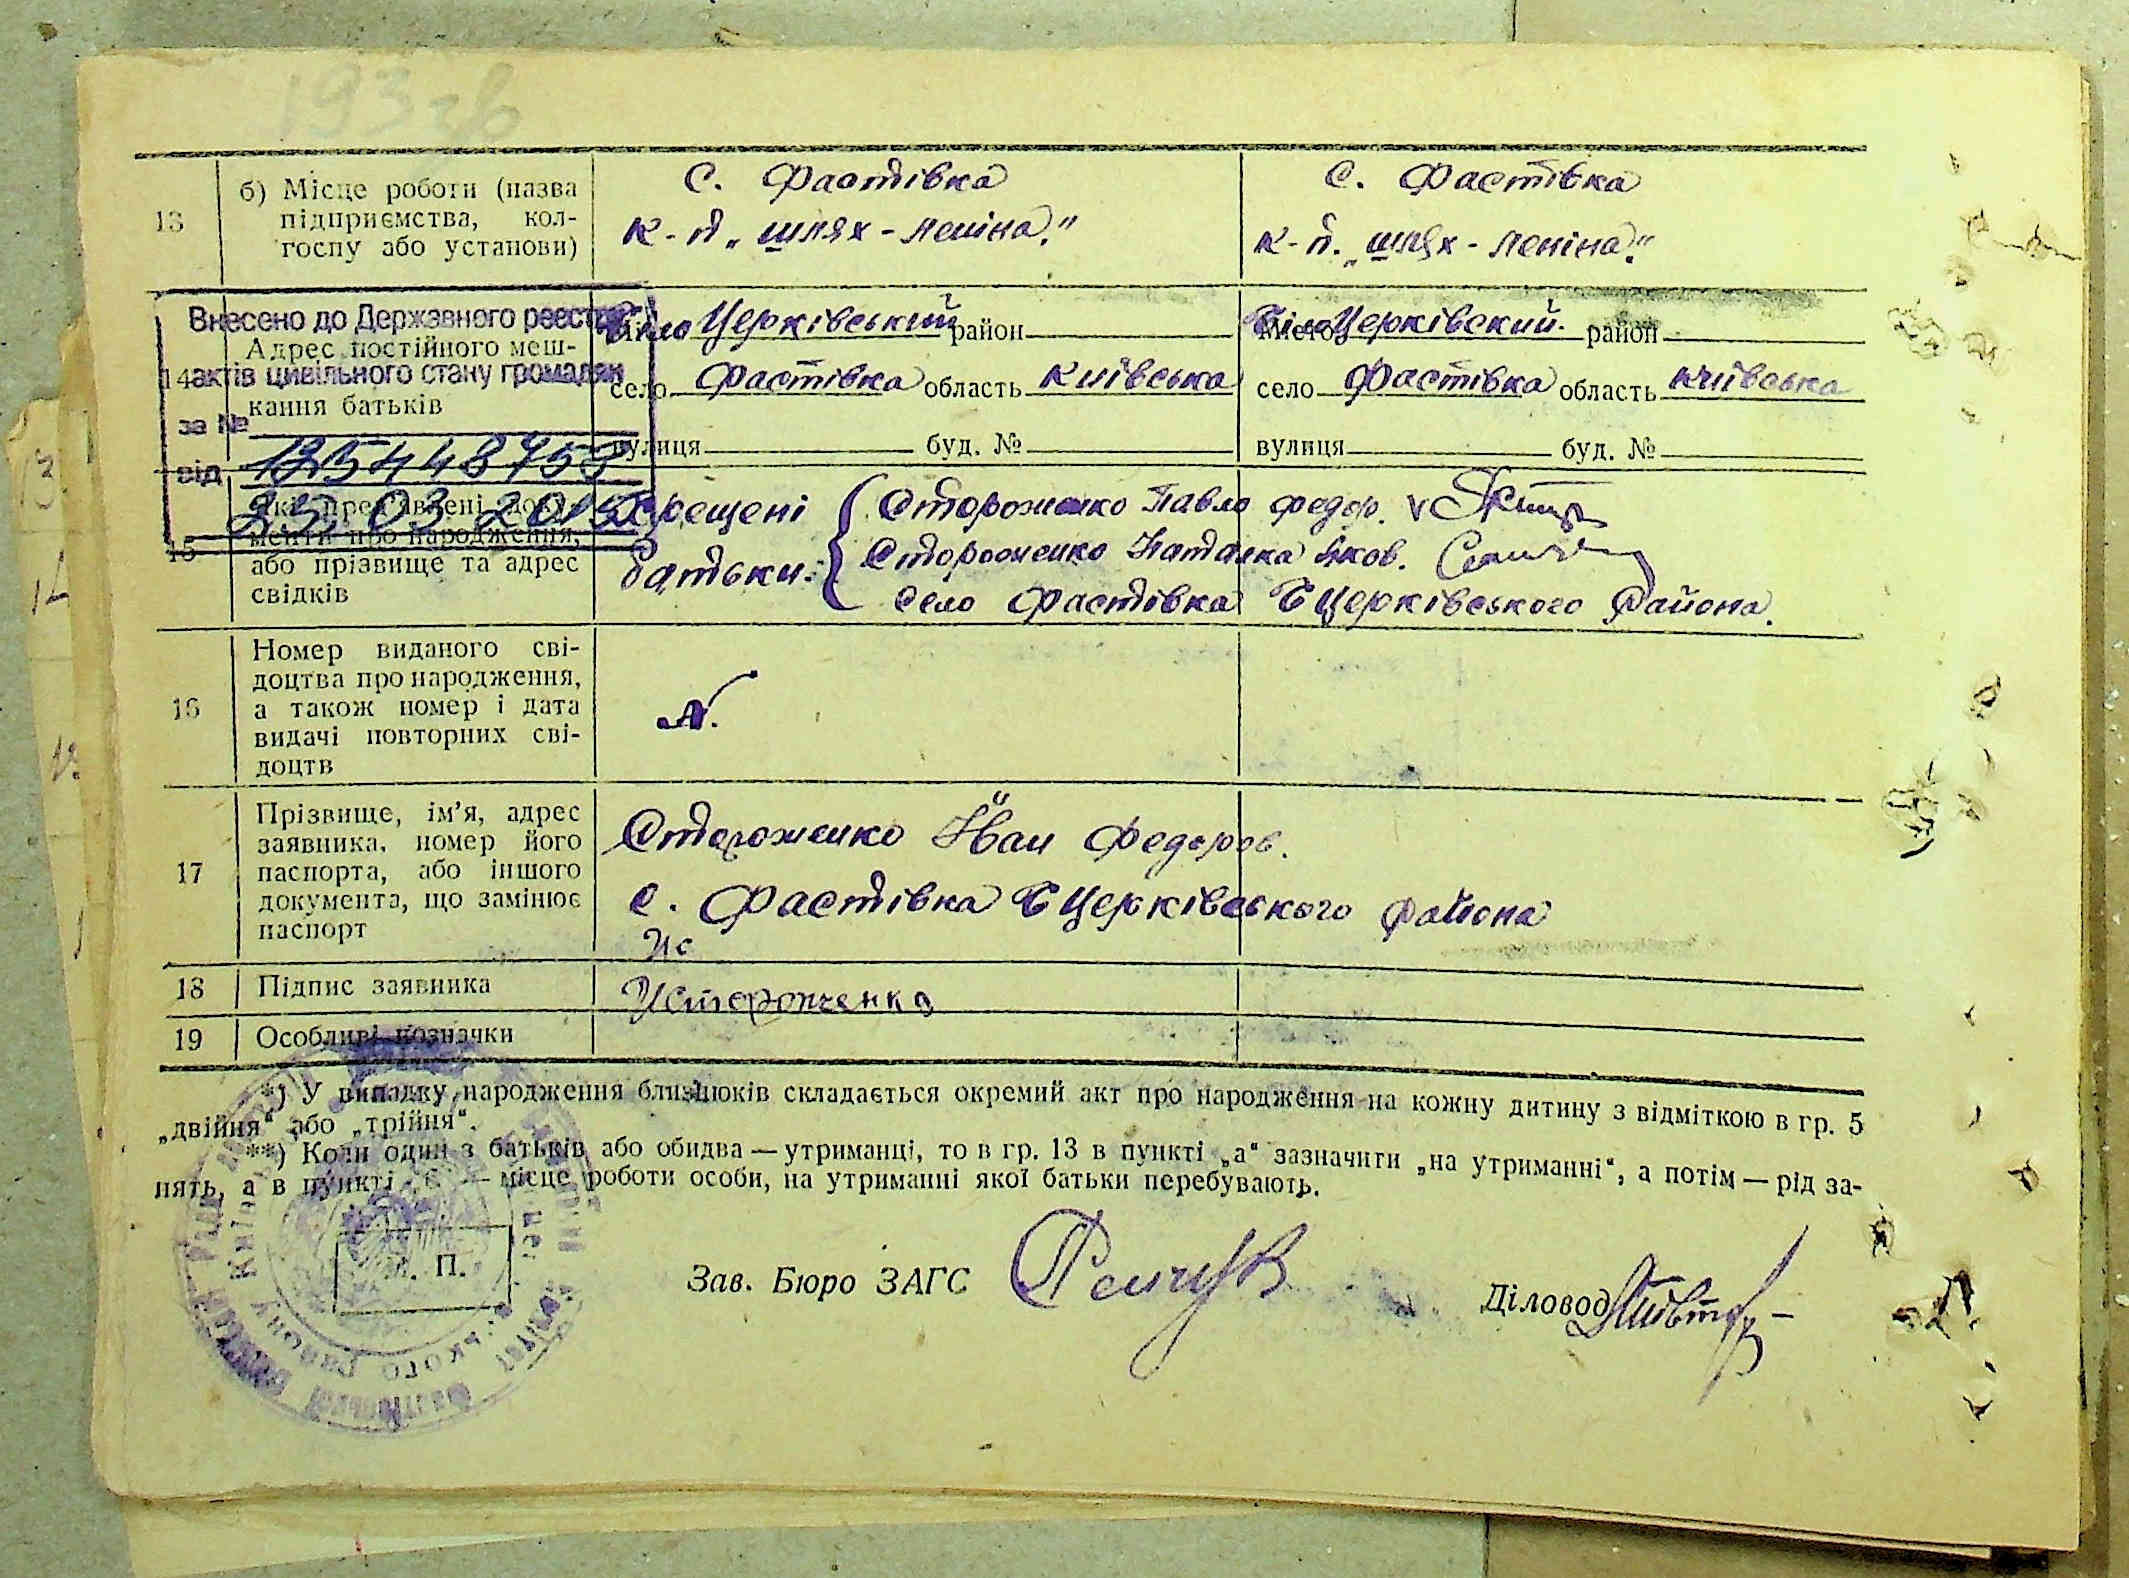 193
б) Місце роботи (назва
13 підприємства, кол-
госпу або установи)
С. Фастівка
к-п „шлях-Леніна."
С. Фастівка
к-п. „шлях-Леніна."
Внесено до Державного реєстру
актів цивільного стану громадян
за № 13544875
від 03 201
14 Адрес постійного меш-
кання батьків
Біло Церківський район
село Фастівка область Київська
вулиця буд. №
Місто Біло Церківский. район
село Фастівка область Київська
вулиця буд. №
15 Які пред'явлені доку-
менти про народження,
або прізвище та адрес
свідків
Хрещені Стороженко Павло Федор.
батьки: Стороженко Наталка Яков.
село Фастівка БЦерківського Района.
Номер виданого сві-
доцтва про народження,
16 а також номер і дата
видачі повторних сві-
доцтв
N.
Прізвище, ім'я, адрес
заявника, номер його
17 паспорта, або іншого
документа, що замінює
паспорт
Стороженко Йван Федоров.
С. Фастівка БЦерківського Района
Ис
18 Підпис заявника
ИСтороженко
19 Особливі позначки
*) У випадку народження близнюків складається окремий акт про народження на кожну дитину з відміткою в гр. 5
„двійня“ або „трійня“.
**) Коли один з батьків або обидва — утриманці, то в гр. 13 в пункті „а“ зазначити „на утриманні“, а потім — рід за-
нять, а в пункті „б“ — місце роботи особи, на утриманні якої батьки перебувають.
М. П.
Зав. Бюро ЗАГС
Діловод